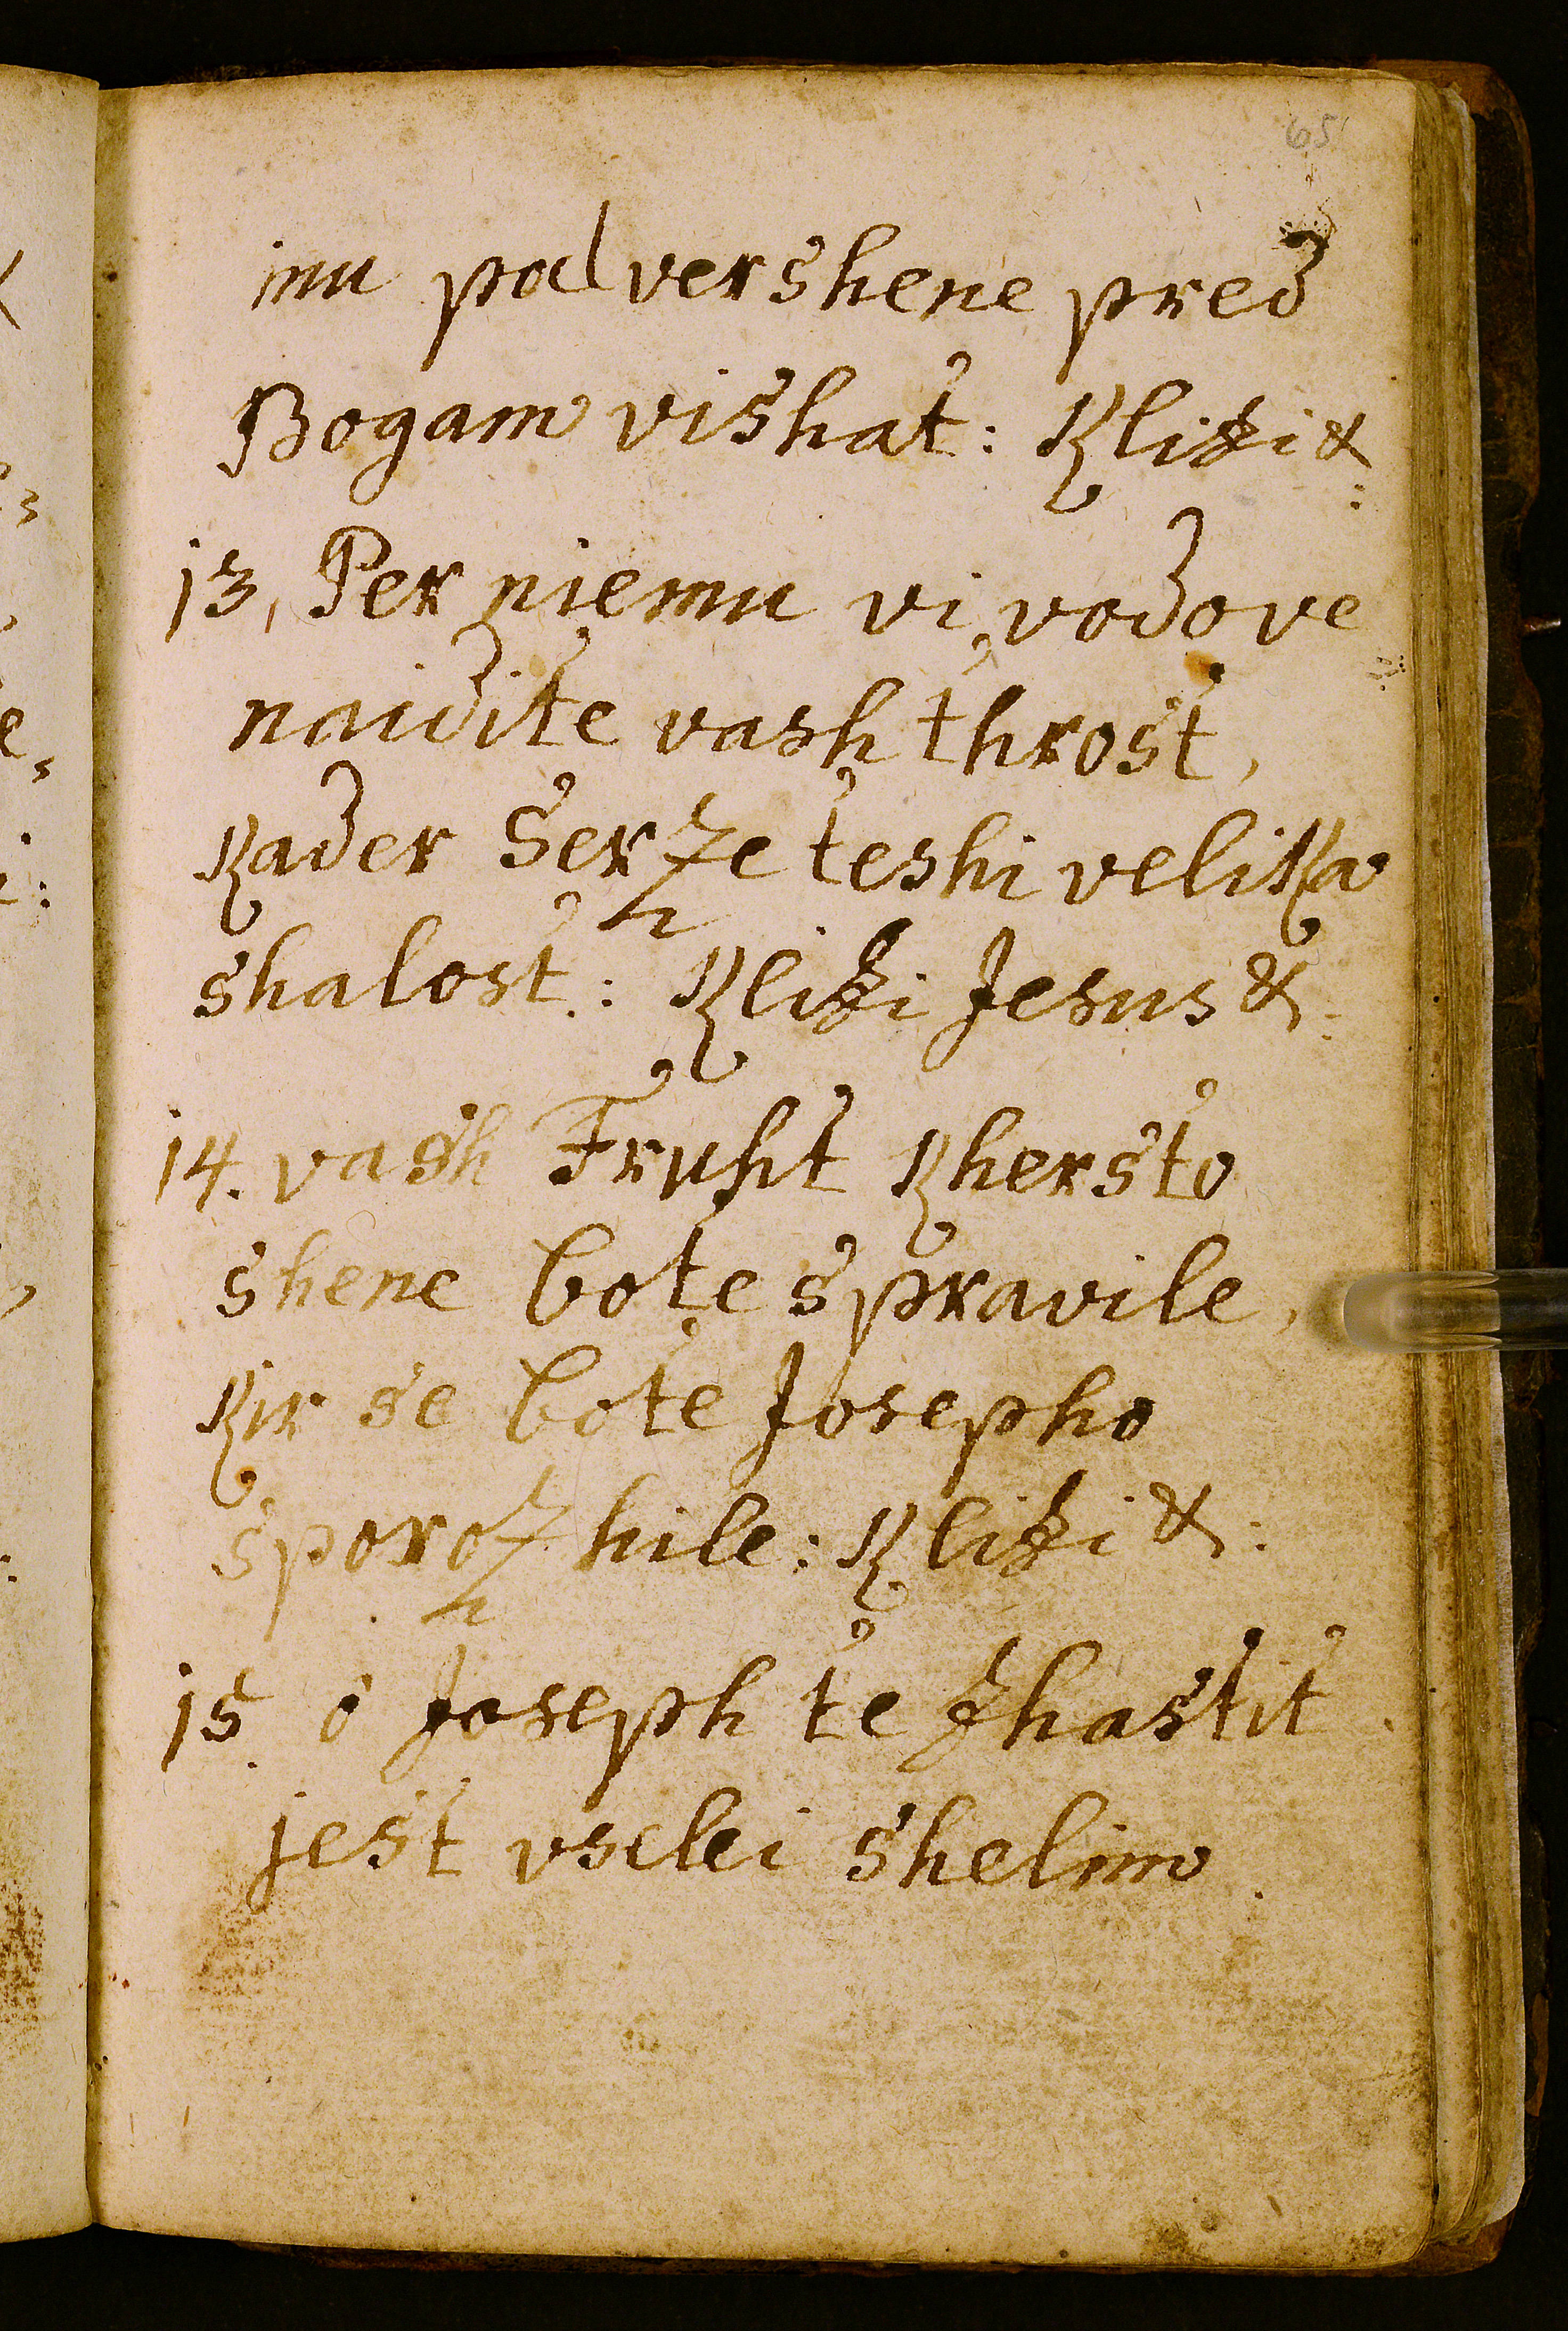 65
inu pol vershene pred
Bogam vishat: Klizi &:
13, Per niemu vi, vodove
naidite vash throst,
Kader Serze teshi velika
shalost: Klizi Jesus &:
14. vash Fruht Khersto
shene bote spravile,
Kir se bote Josepho
sporozhile: Klizi &:
15. o Joseph te zhastit
jest vselei shelim.